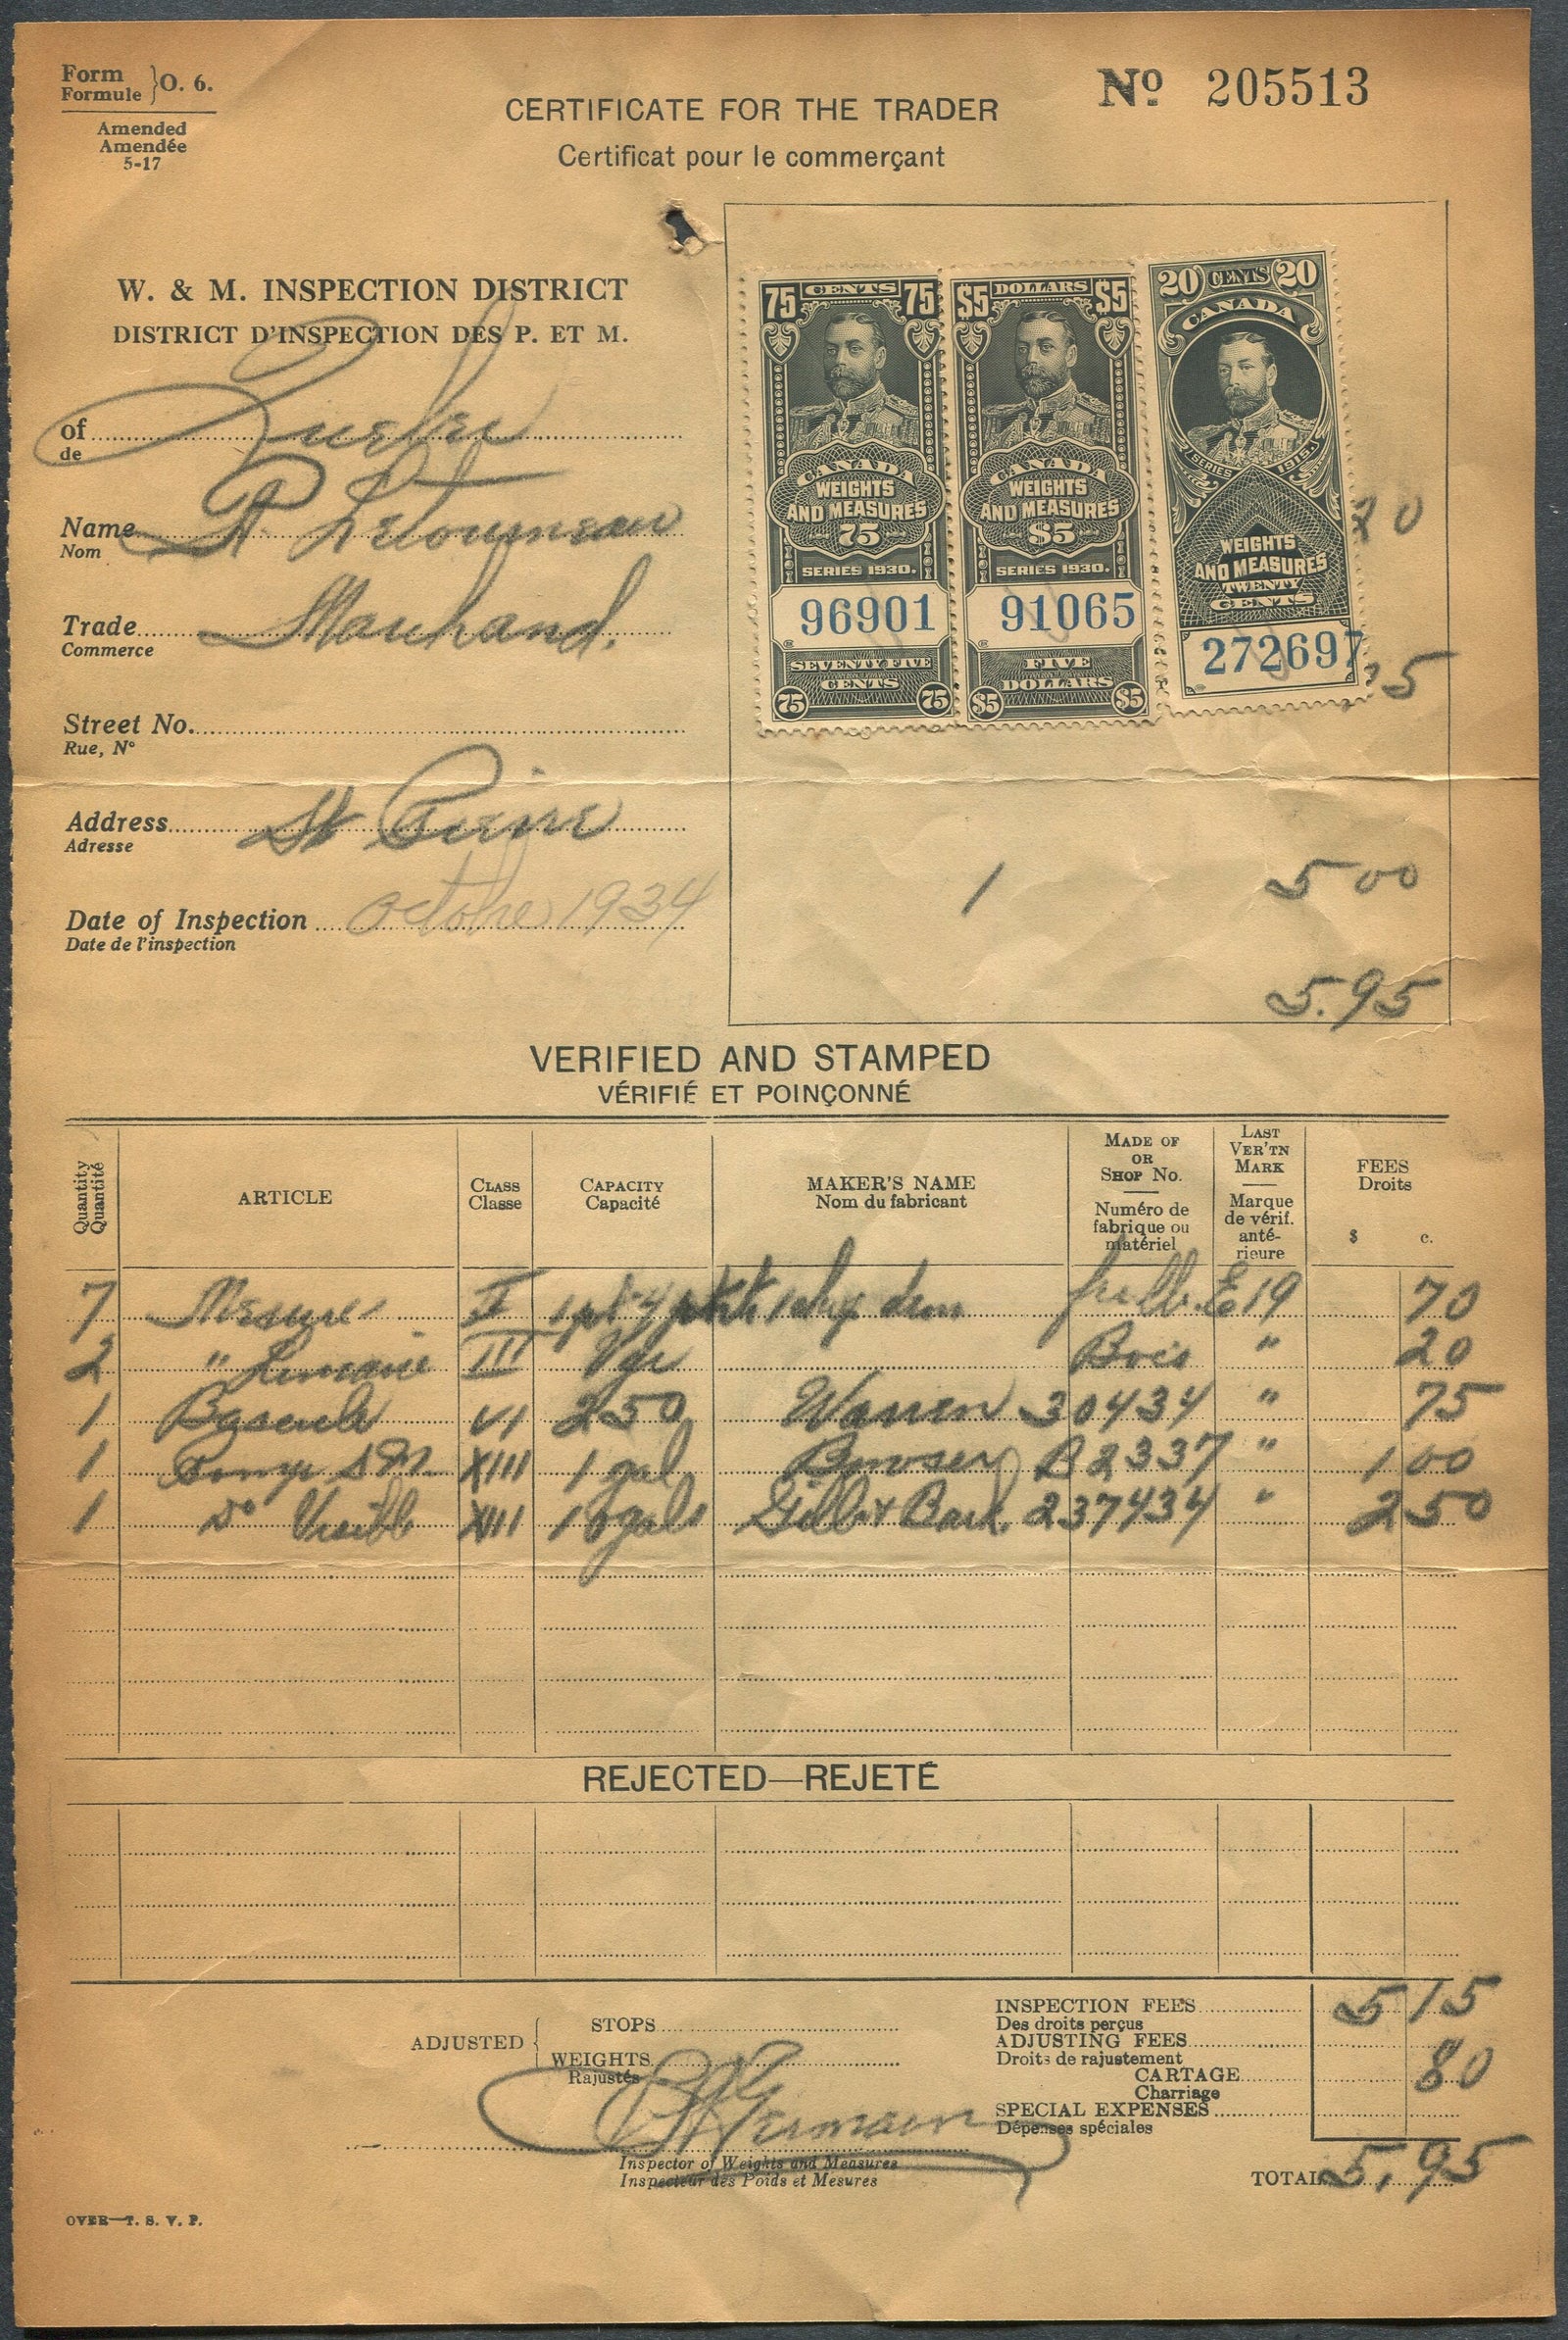 Form
Formule } O. 6.
Amended
Amendée
5-17
Nº 205513
CERTIFICATE FOR THE TRADER
Certificat pour le commerçant
W. & M. INSPECTION DISTRICT
DISTRICT D'INSPECTION DES P. ET M.
of Quebec
de
Name A Letourneau
Nom
Trade Marchand.
Commerce
Street No.
Rue, Nº
Address St
Adresse
Date of Inspection octobre 1934
Date de l'inspection
75 CENTS 75
CANADA
WEIGHTS
AND MEASURES
75
SERIES 1930.
96901
SEVENTY FIVE
CENTS
75 75
$5 DOLLARS $5
CANADA
WEIGHTS
AND MEASURES
$5
SERIES 1930.
91065
FIVE
DOLLARS
$5 $5
20 CENTS 20
CANADA
SERIES 1915.
WEIGHTS
AND MEASURES
TWENTY
CENTS
272697
20
75
1 5 00
5.95
VERIFIED AND STAMPED
VÉRIFIÉ ET POINÇONNÉ
Quantity
Quantité
ARTICLE
CLASS
Classe
CAPACITY
Capacité
MAKER'S NAME
Nom du fabricant
MADE OF
OR
SHOP No.
Numéro de
fabrique ou
matériel
LAST
VER'TN
MARK
Marque
de vérif.
anté-
rieure
FEES
Droits
$ c.
7 Mesures II 1 pt E19 70
2 " III Vge Bois " 20
1 Bascule VI 250 Warren 30434 " 75
1 Pompe S.M. XIII 1 gal Bowser B2337 " 1 00
1 do Visible XIII 10 gals Gilb & Bark. 237434 " 2 50
REJECTED—REJETÉ
ADJUSTED { STOPS
WEIGHTS
Rajustés
INSPECTION FEES 5 15
Des droits perçus
ADJUSTING FEES
Droits de rajustement
CARTAGE 80
Charriage
SPECIAL EXPENSES
Dépenses spéciales
Germain
Inspector of Weights and Measures
Inspecteur des Poids et Mesures
TOTAL 5.95
OVER—T. S. V. P.